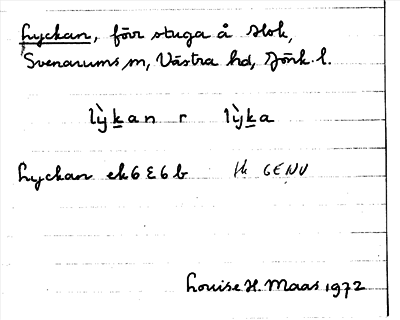 Lyckan, förr stuga å Slok,
Svenarums sn, Västra hd, Jönk. l.
lỳkan r lỳka
Lyckan ek6E6b Ik GENU
Louise H. Maas 1972